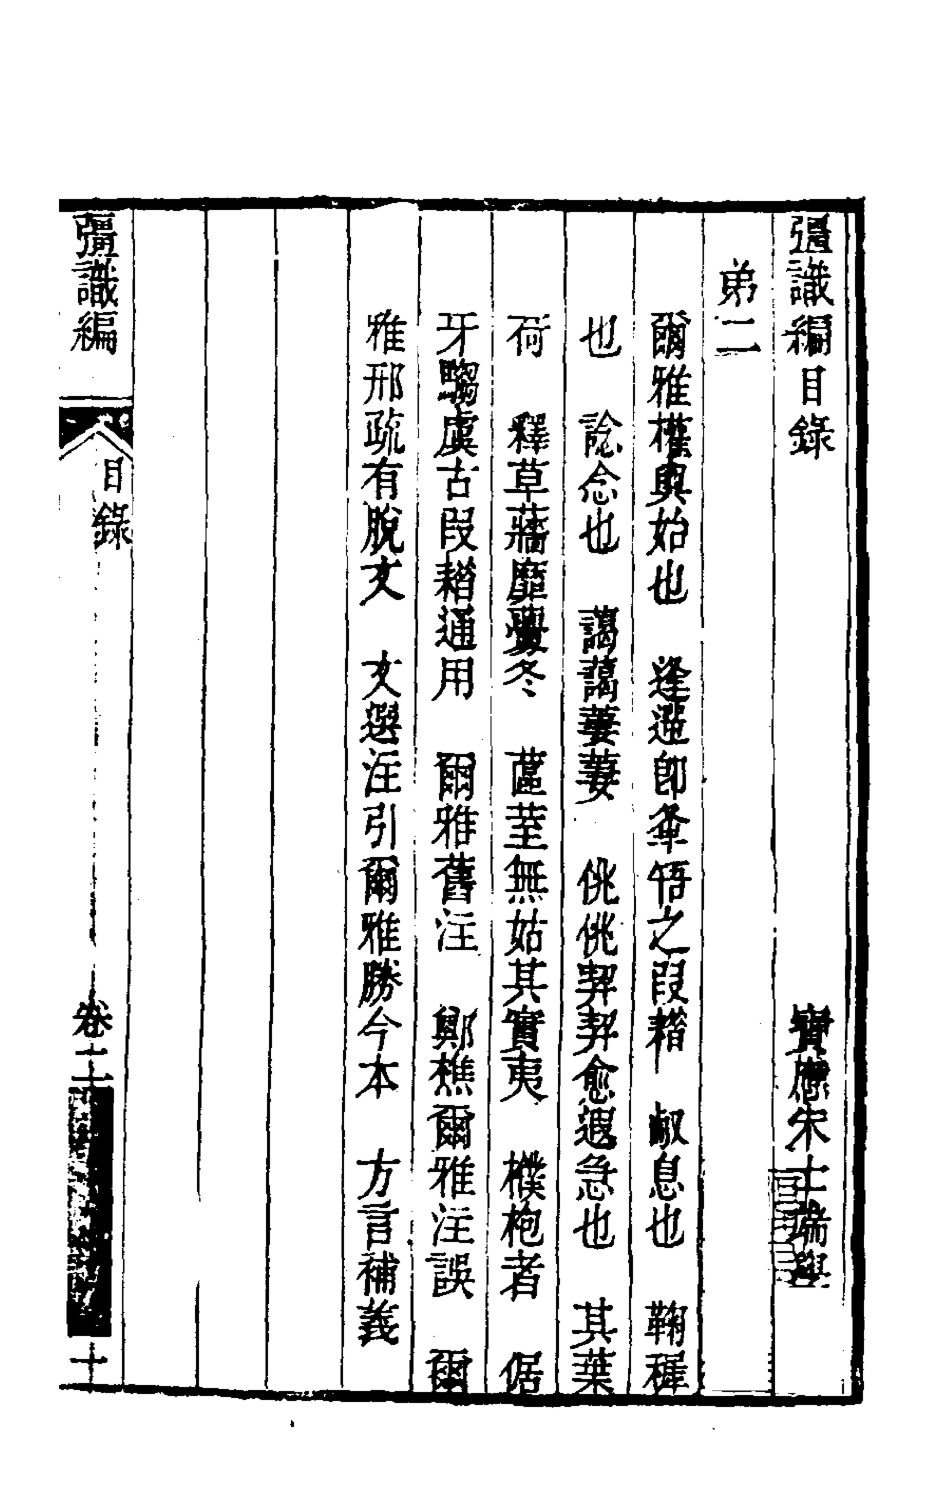 彊識編目錄　寶應朱士瑞與
弟二
爾雅權輿始也　逢遻即夆啎之叚藉　㕟息也　鞠稺
也　諗念也　藹藹萋萋　佻佻契契愈遐急也　其葉
荷　釋草蘠蘼虋冬　莁荎無姑其實夷　樸枹者　倨
牙騶虞古叚藉通用　爾雅舊注　鄭樵爾雅注誤　爾
雅邢疏有脫文　文選注引爾雅勝今本　方言補義
彊識編　目錄　卷二　十